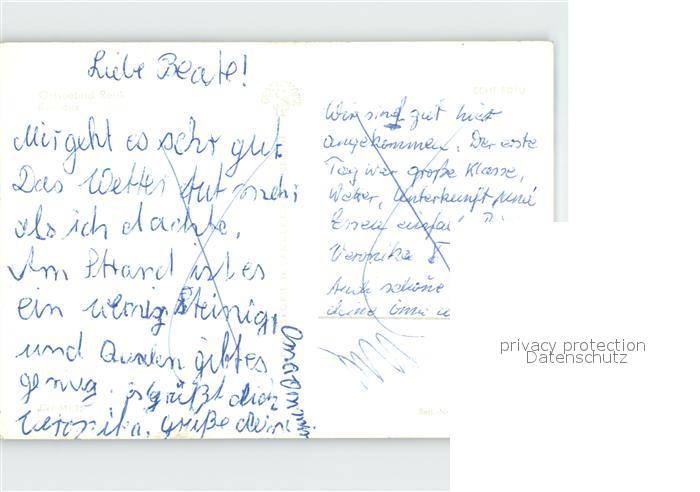 Liebe Beate!
Ostseebad Rerik
Mir geht es sehr gut
Das Wetter tut mehr
als ich dachte.
Am Strand ist es
ein wenig steinig,
und Quallen gibt es
genug. Es grüßt dich
Veronika. Grüße deine
Oma
ECHT FOTO
Wir sind gut hier
angekommen. Der erste
Tag war große Klasse,
Wetter, Unterkunft und
Essen
Veronika
Auch schöne
deine
privacy protection
Datenschutz